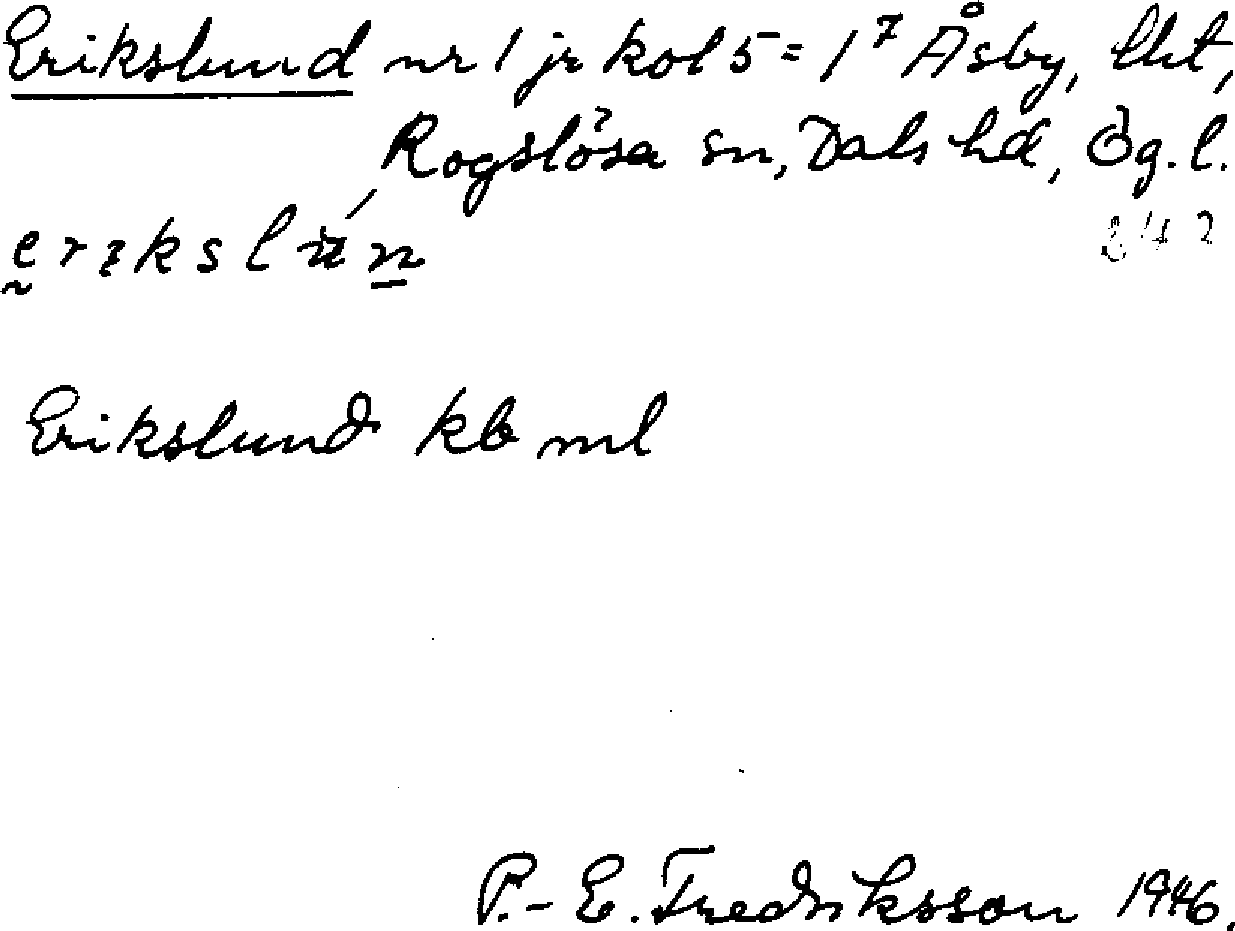 Erikslund nr 1 jr kol 5 = 1⁷ Åsby, lht,
Rogslösa sn, Dals hd, Ög. l.
erikslun
242
Erikslund kb ml
P.-E. Fredriksson 1946.